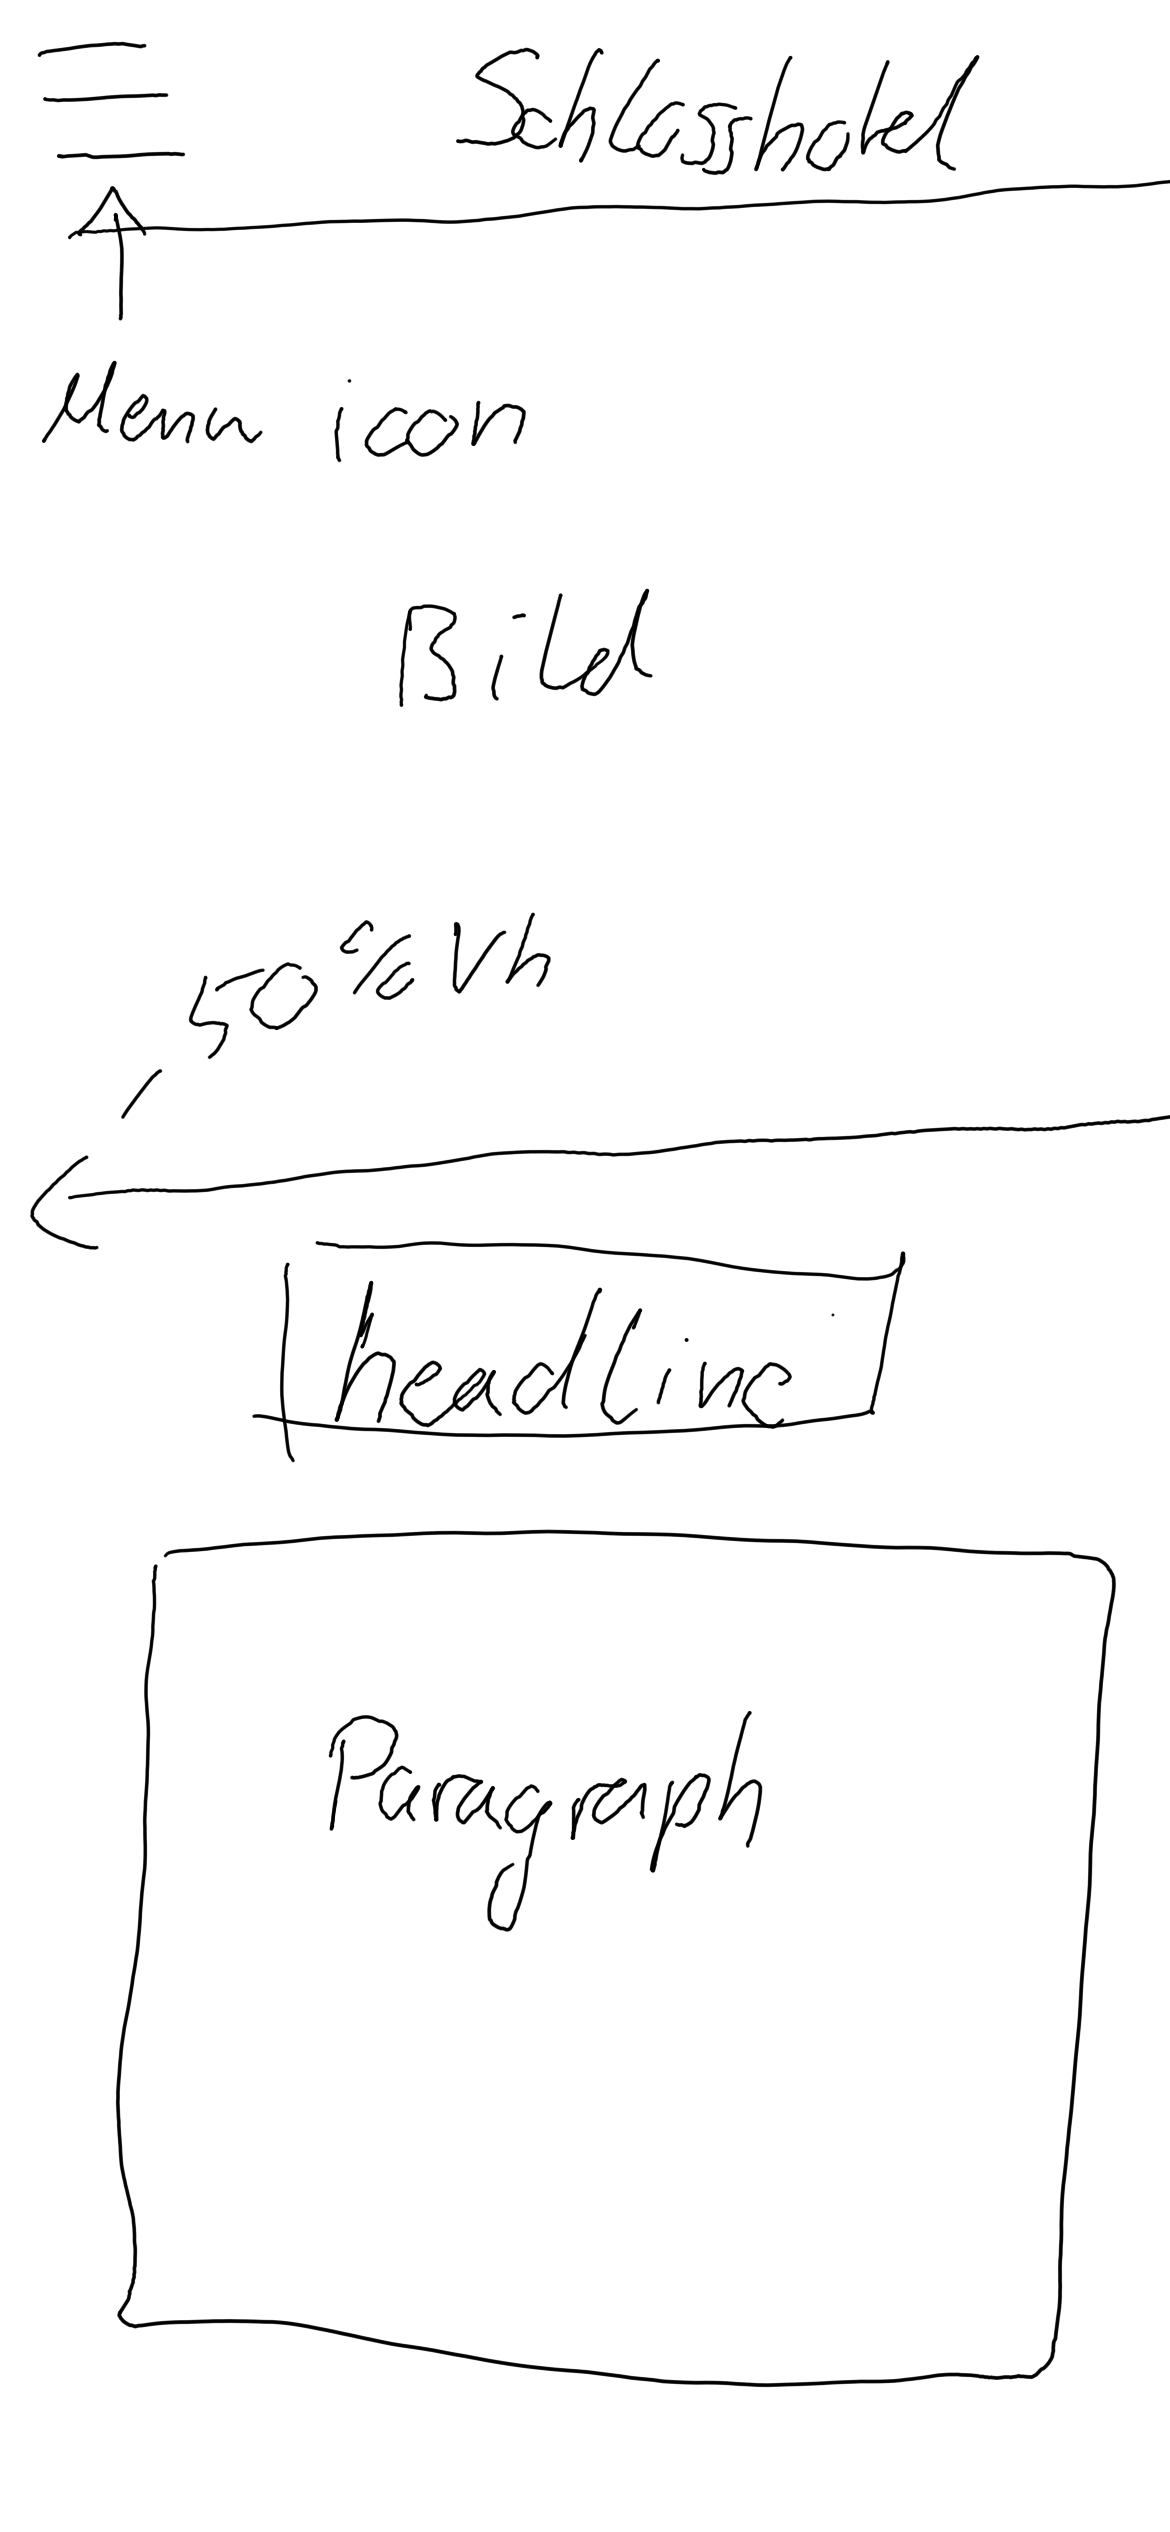 Schlosshotel
Menu icon
Bild
50% Vh
headline
Paragraph